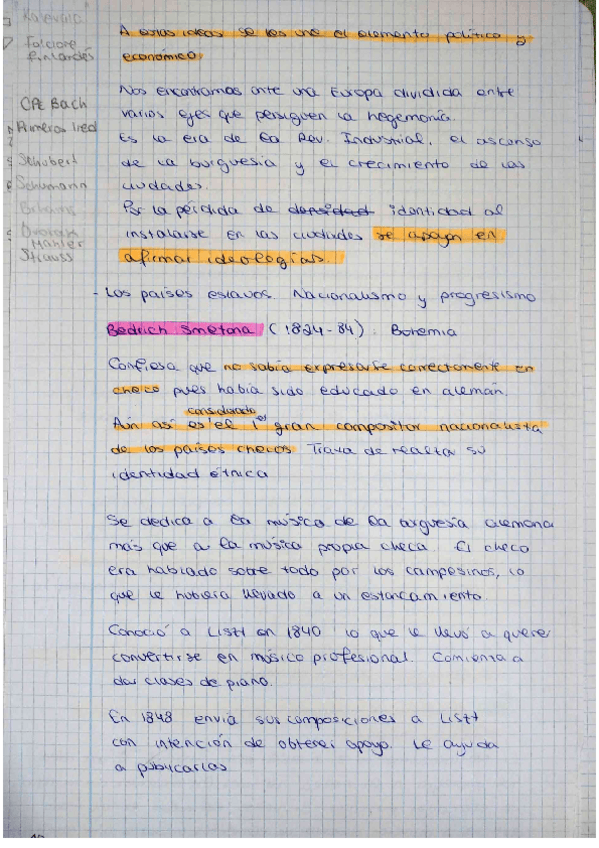 "Kalevala"
Folclore
finlandés
CPE Bach
Primeros lied
Schubert
Schumann
Brahms
Dvorak
Mahler
Strauss
A estas ideas se les une el elemento político y
económico.
Nos encontramos ante una Europa dividida entre
varios ejes que persiguen la hegemonía.
Es la era de la Rev. Industrial, el ascenso
de la burguesía y el crecimiento de las
ciudades.
Por la pérdida de densidad identidad al
instalarse en las ciudades se apoyan en
afirmar ideologías.
- Los países eslavos. Nacionalismo y progresismo
Bedrich Smetana (1824-84). Bohemia
Confiesa que no sabía expresarse correctamente en
checo pues había sido educado en alemán.
considerado
Aún así es el 1er gran compositor nacionalista
de los países checos Trata de realzar su
identidad étnica
Se dedica a la música de la alemana
más que a la música propia checa. El checo
era hablado sobre todo por los campesinos, lo
que le hubiera llevado a un estancamiento.
Conoció a Liszt en 1840 lo que le llevó a querer
convertirse en músico profesional. Comienza a
dar clases de piano.
En 1848 envía sus composiciones a Liszt
con intención de obtener apoyo. Le ayuda
a publicarlas